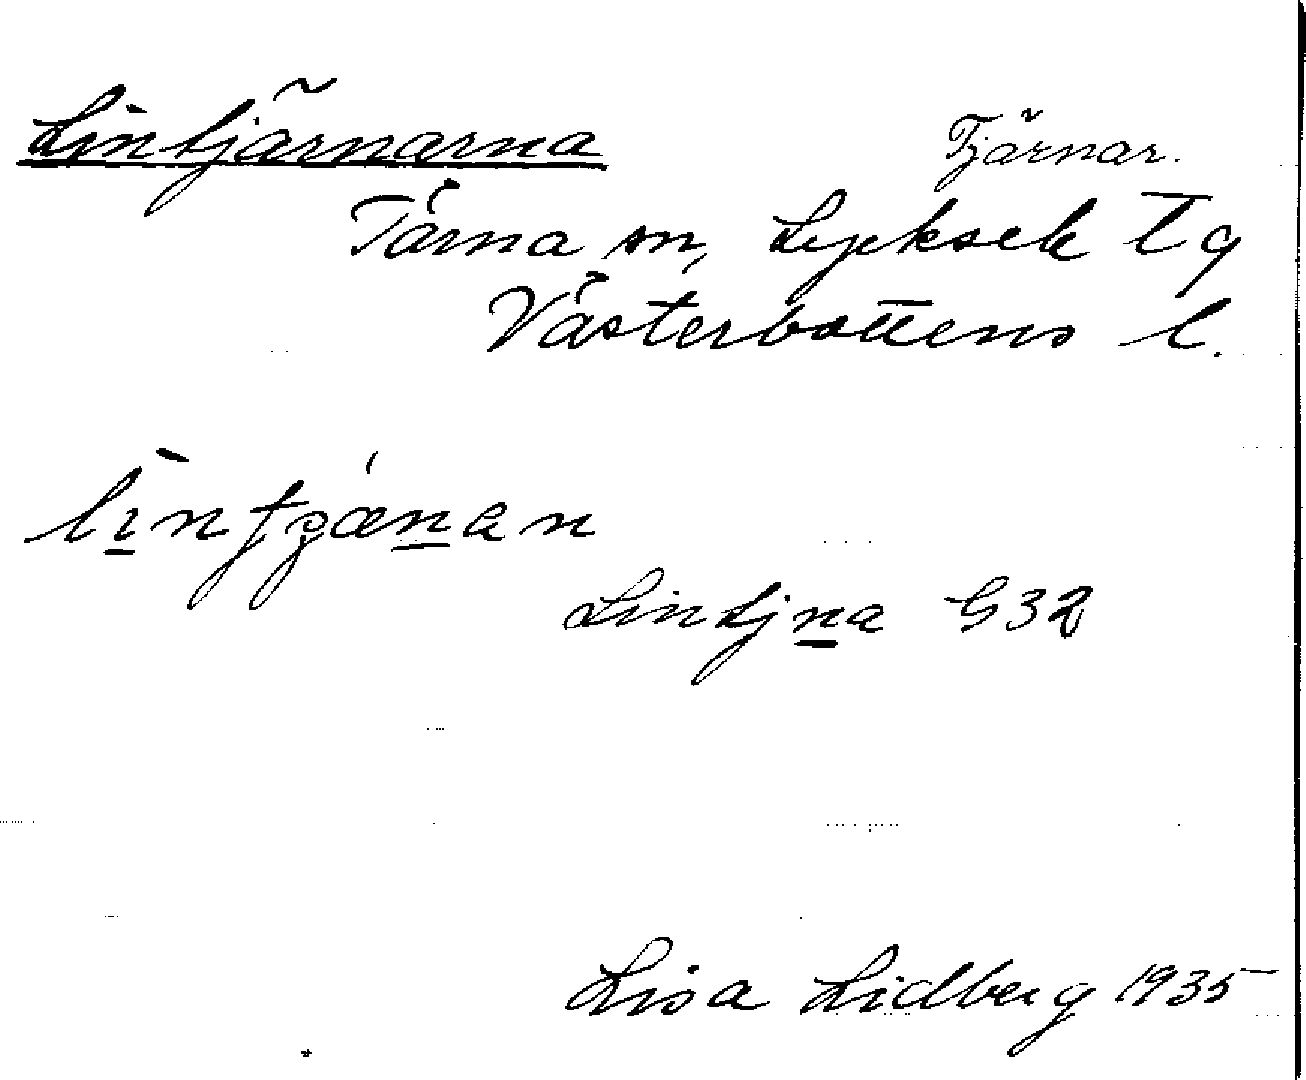 Lintjärnarna Tjärnar.
Tärna sn, Lycksele Tg
Västerbottens l.
Lintjna G32
Lisa Lidberg 1935